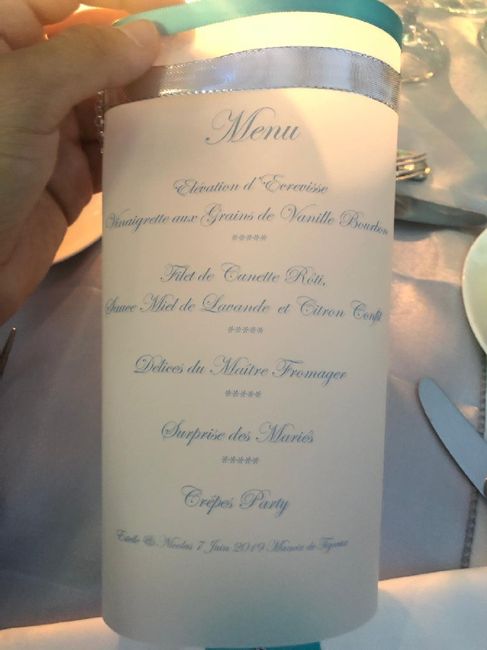 Menu
Elévation d'Ecrevisse
Vinaigrette aux Grains de Vanille Bourbon
*****
Filet de Canette Rôti,
Sauce Miel de Lavande et Citron Confit
*****
Délices du Maître Fromager
*****
Surprise des Mariés
*****
Crêpes Party
Estelle & Nicolas 7 Juin 2019 Manoir de